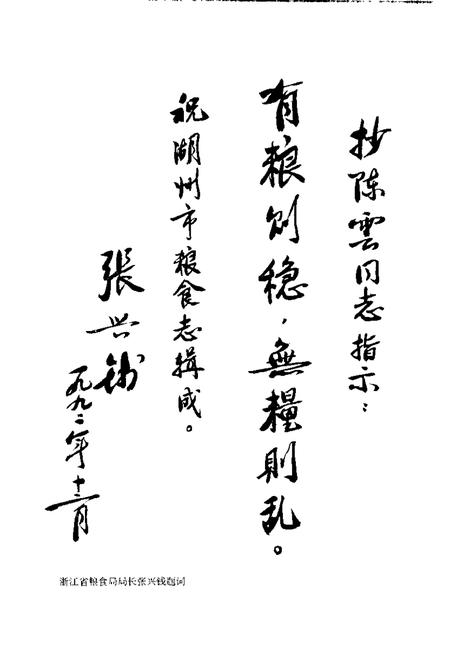 抄陈雲同志指示：
有粮则稳，無糧則乱。
祝湖州市粮食志辑成。
張兴钱
一九九二年十二月
浙江省粮食局局长张兴钱题词